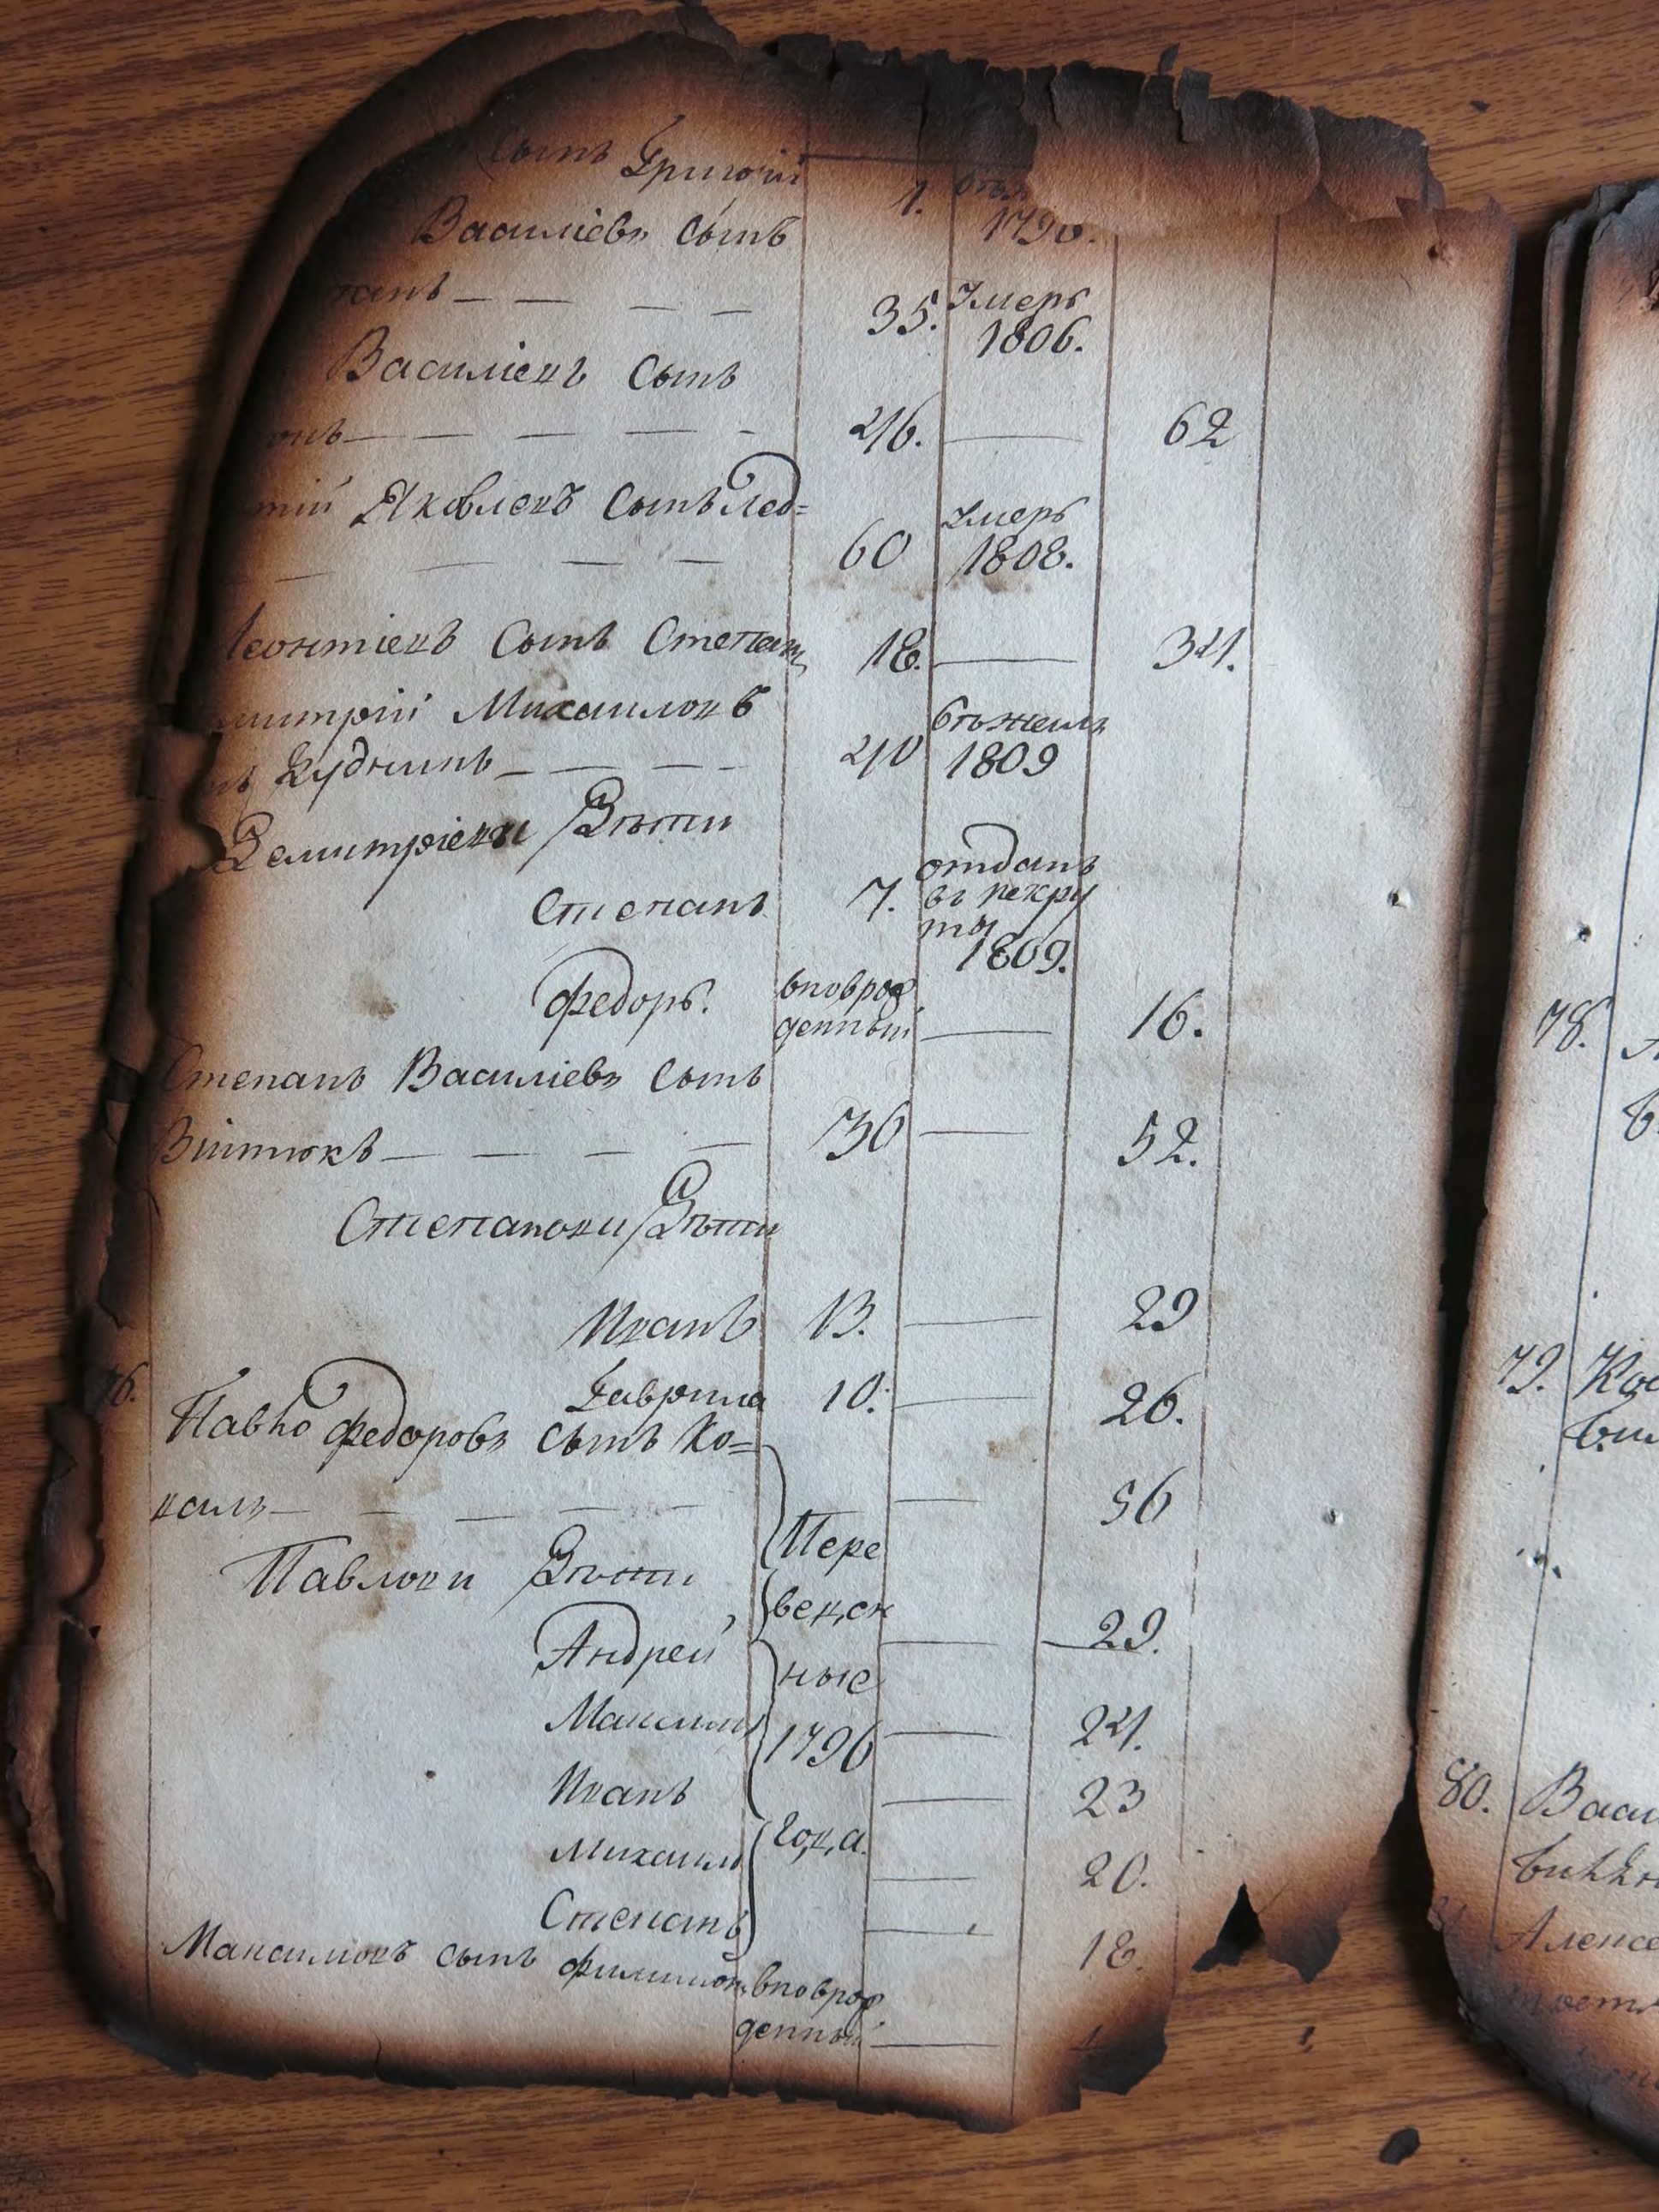 сынъ Григорій 1.
1790.
Василіевъ сынъ
35. Умеръ
1806.
Василіевъ Сынъ
46. 62
Яковлевъ Сынъ Лед=
60 Умеръ
1808.
Леонтіевъ Сынъ Степанъ 18. 34.
митрій Михайловъ
Кудринъ 40 бѣжалъ
1809
Демитріевы Дѣти
Степанъ 7. отданъ
въ рекру
ты
1809.
Федоръ. вноврож
денный 16.
Степанъ Василіевъ сынъ
Війтюкъ 36 52.
Степановы Дѣти
Иванъ 13. 29
Гаврила 10. 26.
76. Павло Федоровъ сынъ Ко=
валь 56
Павловы Дѣти
Пере
веден
ные
1796
года.
Андрей 29.
Максимъ 24.
Иванъ 23
Михаилъ 20.
Степанъ 18.
Максимовъ сынъ Филимонъ вноврож
денный
78.
79.
80.
Алексе